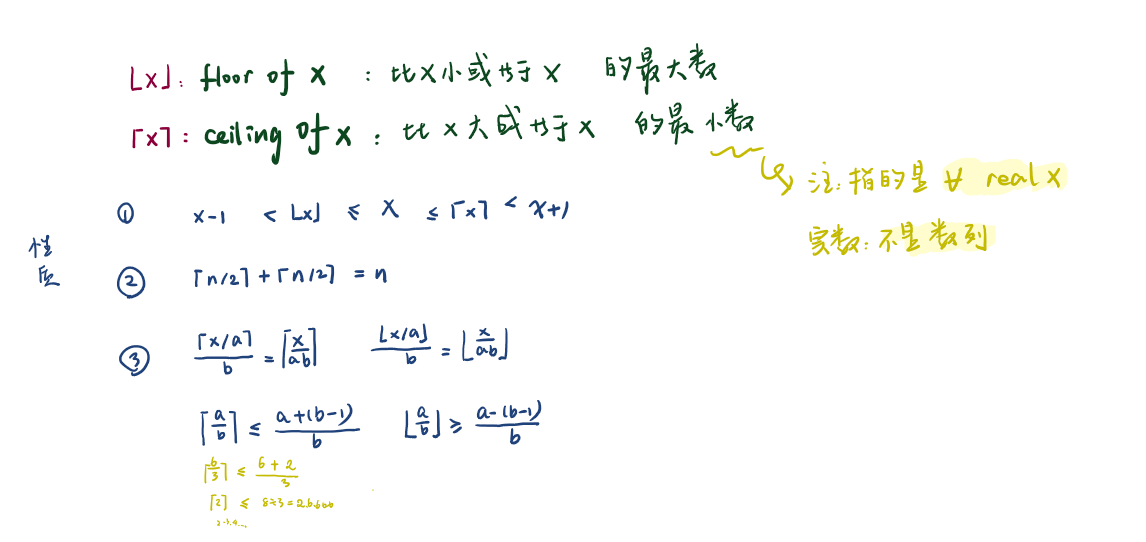 ⌊x⌋: floor of x : 比x小或等于x 的最大数
⌈x⌉: ceiling of x : 比x大或等于x 的最小数
注:指的是 ∀ real x
实数:不是数列
性质
① x-1 < ⌊x⌋ ≤ x ≤ ⌈x⌉ < x+1
② ⌈n/2⌉+⌈n/2⌉ = n
③ ⌈x/a⌉/b = ⌈x/ab⌉ ⌊x/a⌋/b = ⌊x/ab⌋
⌈a/b⌉ ≤ a+(b-1)/b ⌊a/b⌋ ≥ a-(b-1)/b
⌈6/3⌉ ≤ 6+2/3
⌈2⌉ ≤ 8÷3=2.6666